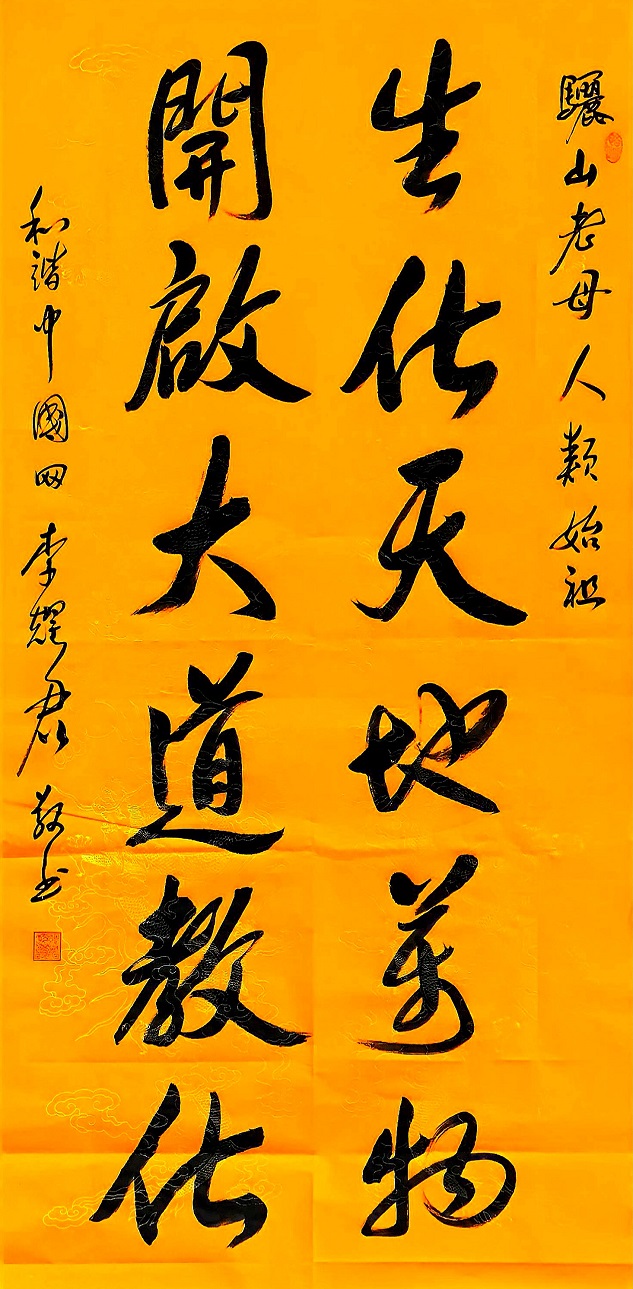 驪山老母人類始祖
生化天地萬物
開啟大道教化
和諧中國网李耀君敬书